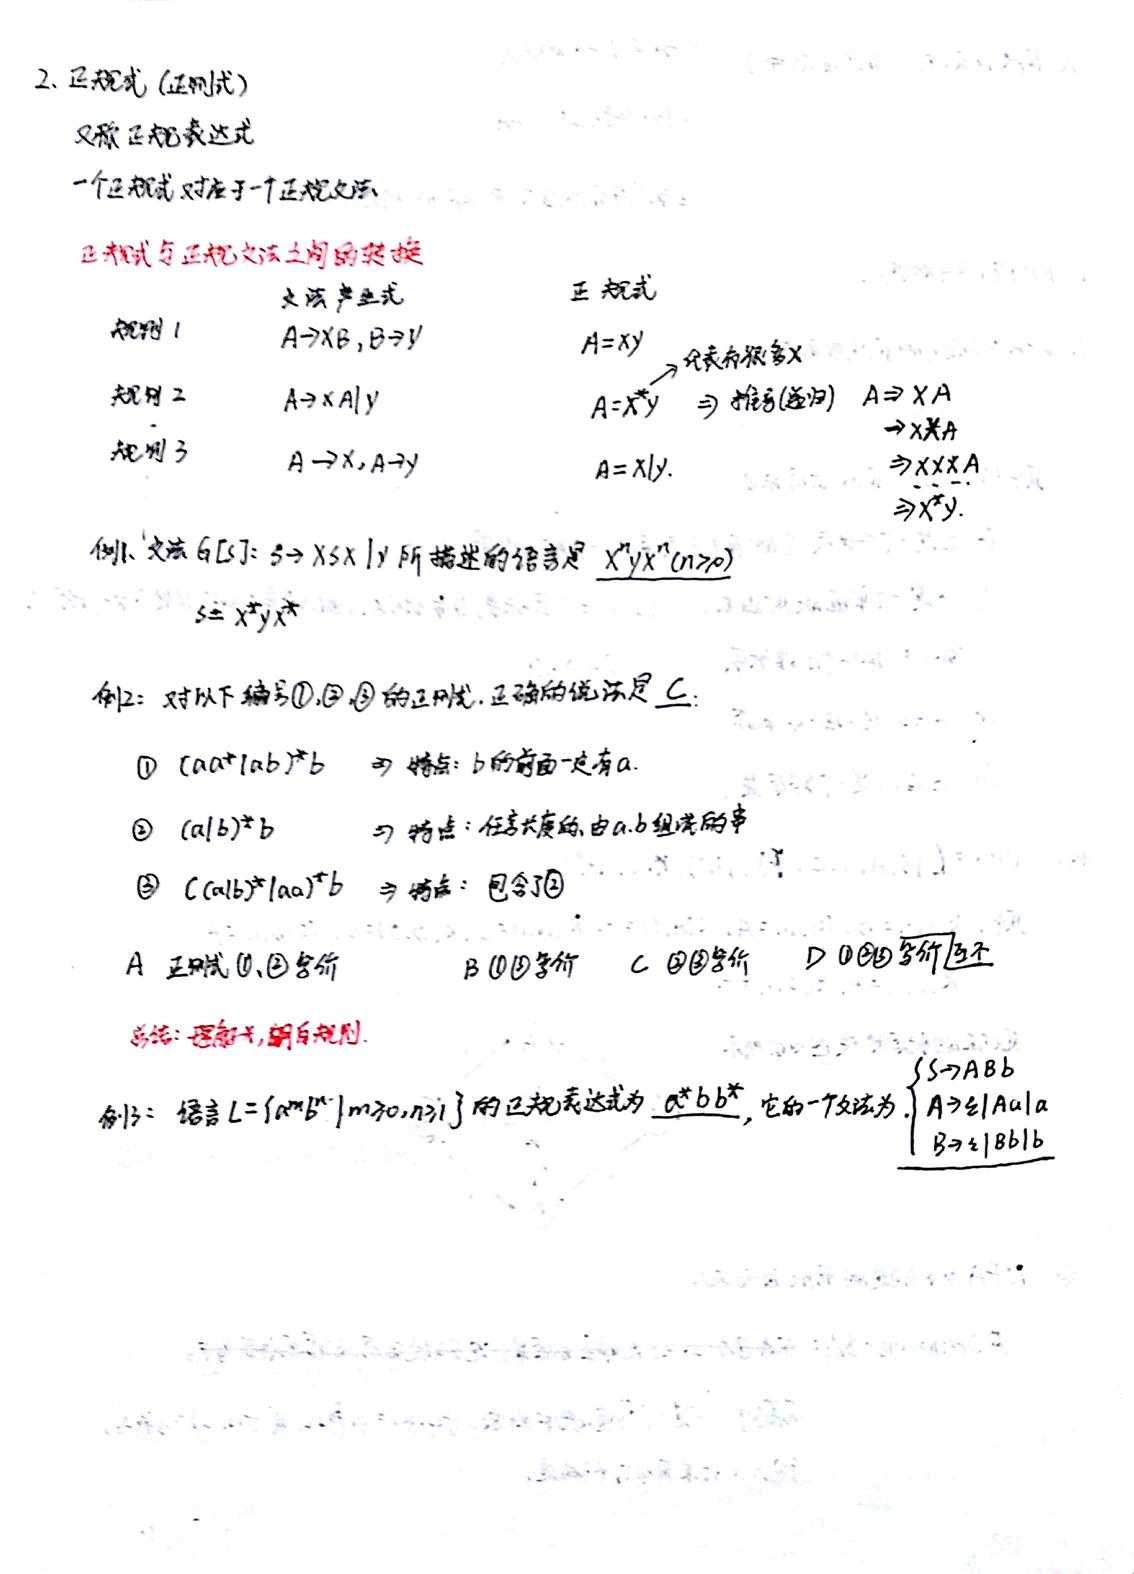 2、正规式（正则式）
又称正规表达式
一个正规式对应于一个正规文法
正规式与正规文法之间的转换
文法产生式 正规式
规则1 A→xB, B→y A=xy
代表有很多x
规则2 A→xA|y A=x*y ⇒ 推导(递归) A⇒xA
→xxA
规则3 A→x, A→y A=x|y. ⇒xxxA
⇒x*y.
例1、文法G[S]: S→xSx|y 所描述的语言是 xⁿyxⁿ(n≥0)
S= x*yx*
例2: 对以下编号①,②,③的正则式,正确的说法是 C.
① (aa*|ab)*b ⇒ 特点: b的前面一定有a.
② (a|b)*b ⇒ 特点: 任意长度的,由a.b组成的串
③ ((a|b)*|aa)*b ⇒ 特点: 包含了②
A 正则式①、②等价 B ①③等价 C ②③等价 D ①②③等价互不
总结: 理解*,明白规则.
例3: 语言L={aᵐbⁿ|m≥0,n≥1}的正规表达式为 a*bb*, 它的一个文法为. S→ABb
A→ε|Aa|a
B→ε|Bb|b